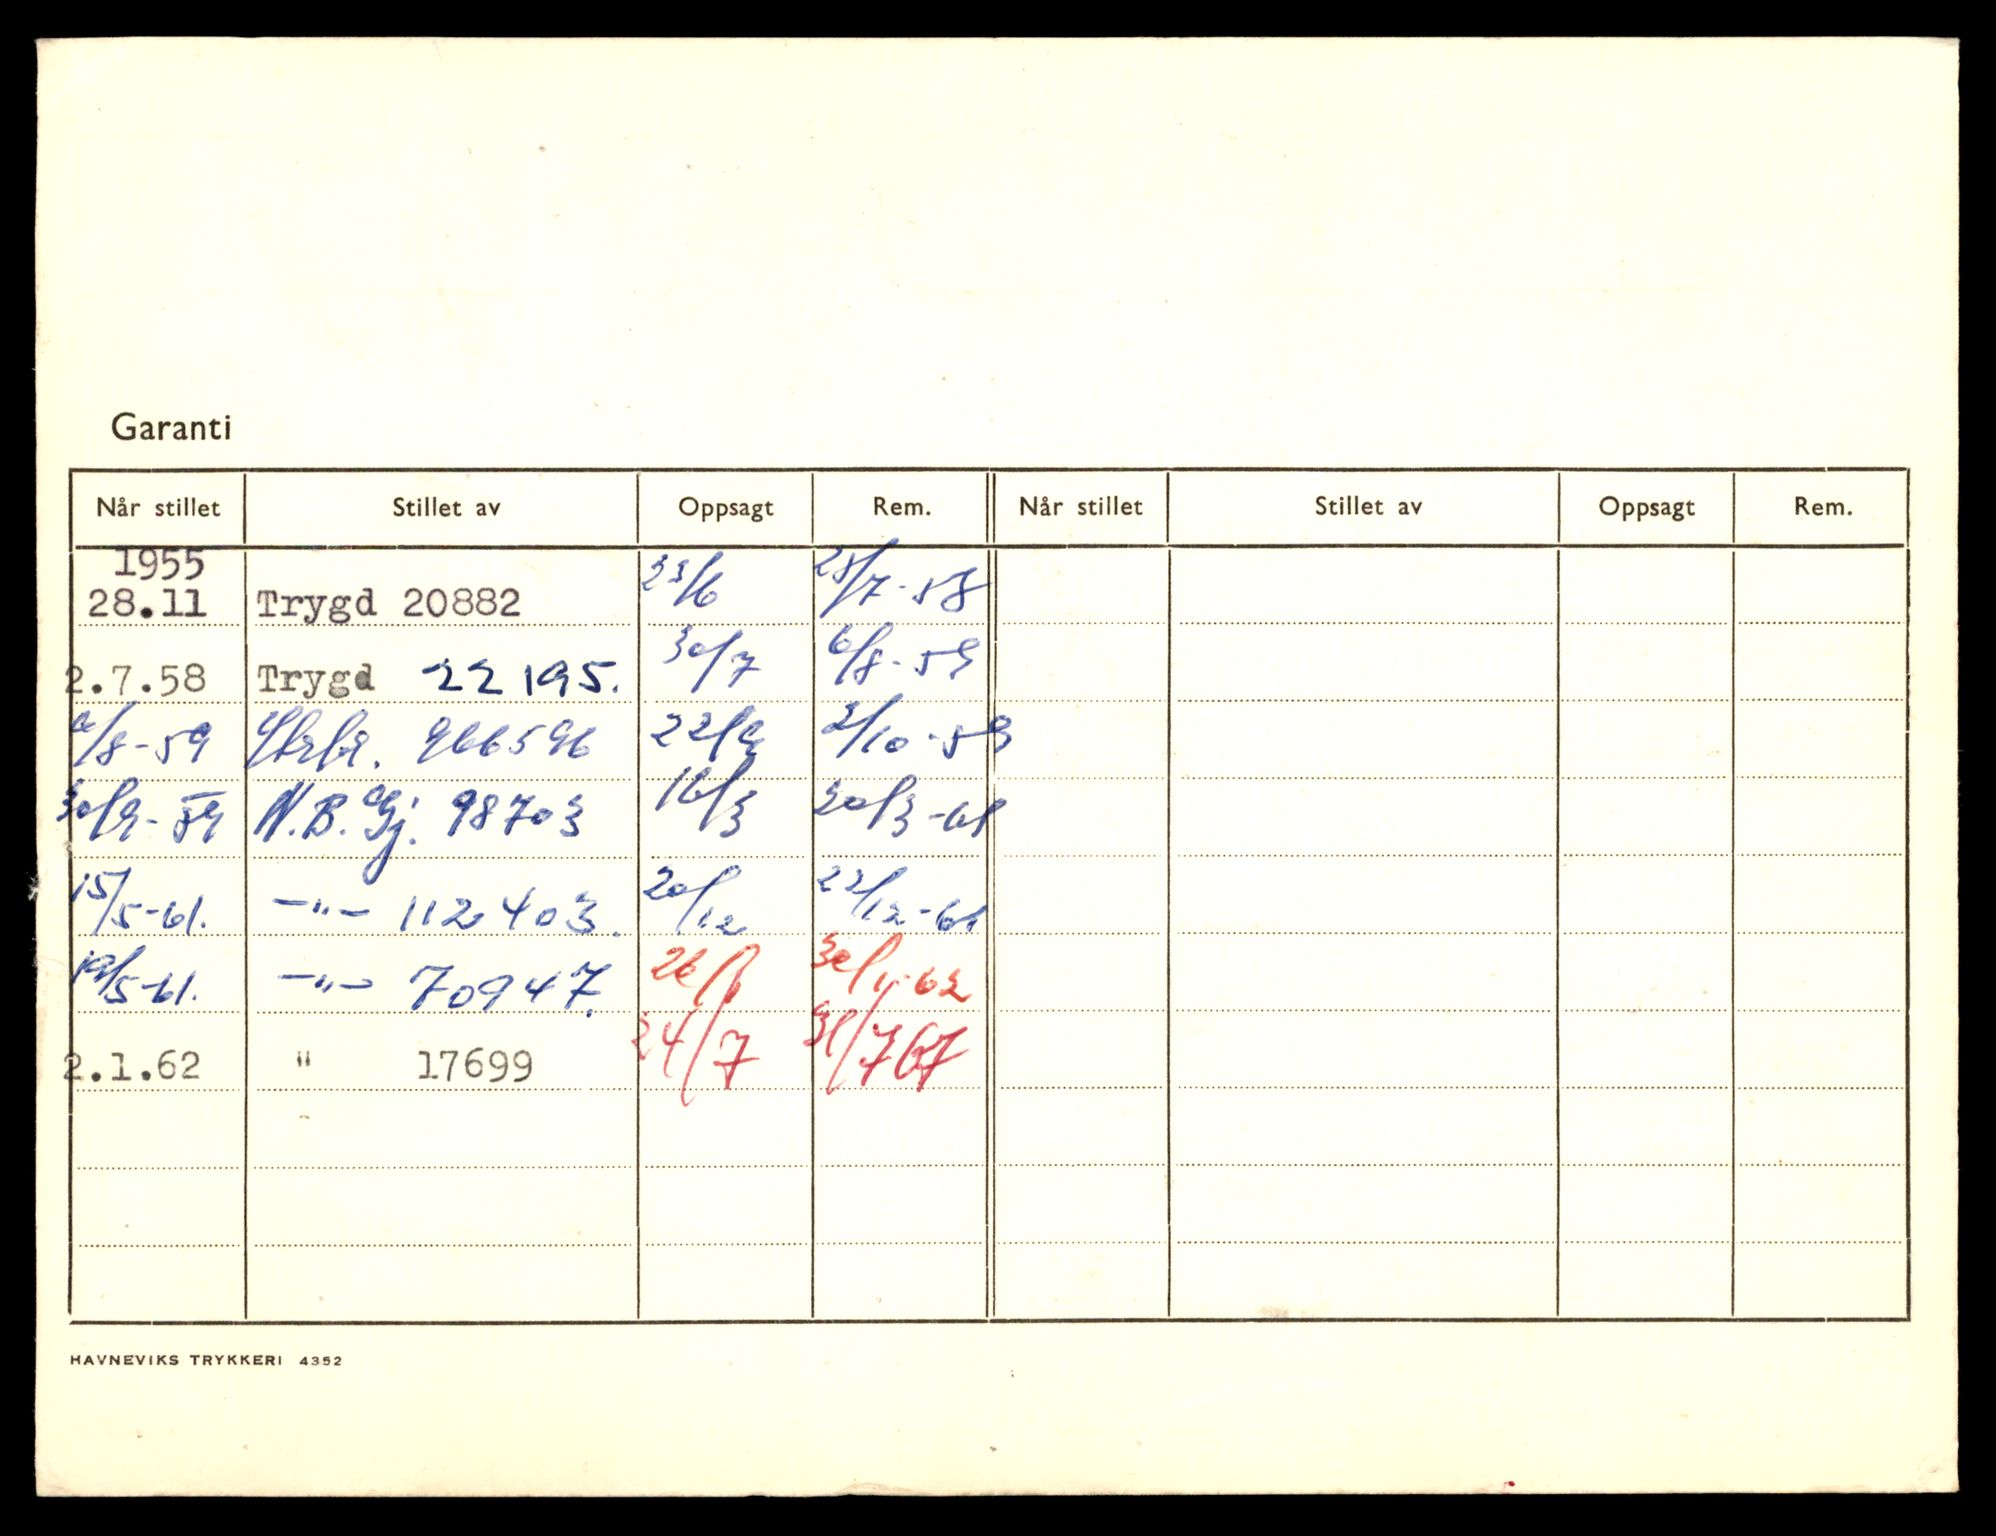 Garanti
Når stillet Stillet av Oppsagt Rem. Når stillet Stillet av Oppsagt Rem.
1955
28.11 Trygd 20882 23/6 28/7-58
2.7.58 Trygd 22195. 30/7 6/8-59
/8-59 966596 22/9 2/10-59
30/9-59 N.B.Gj. 98703 16/3 20/3-61
15/5-61. -"- 112403. 20/12 22/12-61
19/5-61. -"- 70947. 26/1 30/1-62
2.1.62 " 17699 24/7 31/767
HAVNEVIKS TRYKKERI 4352